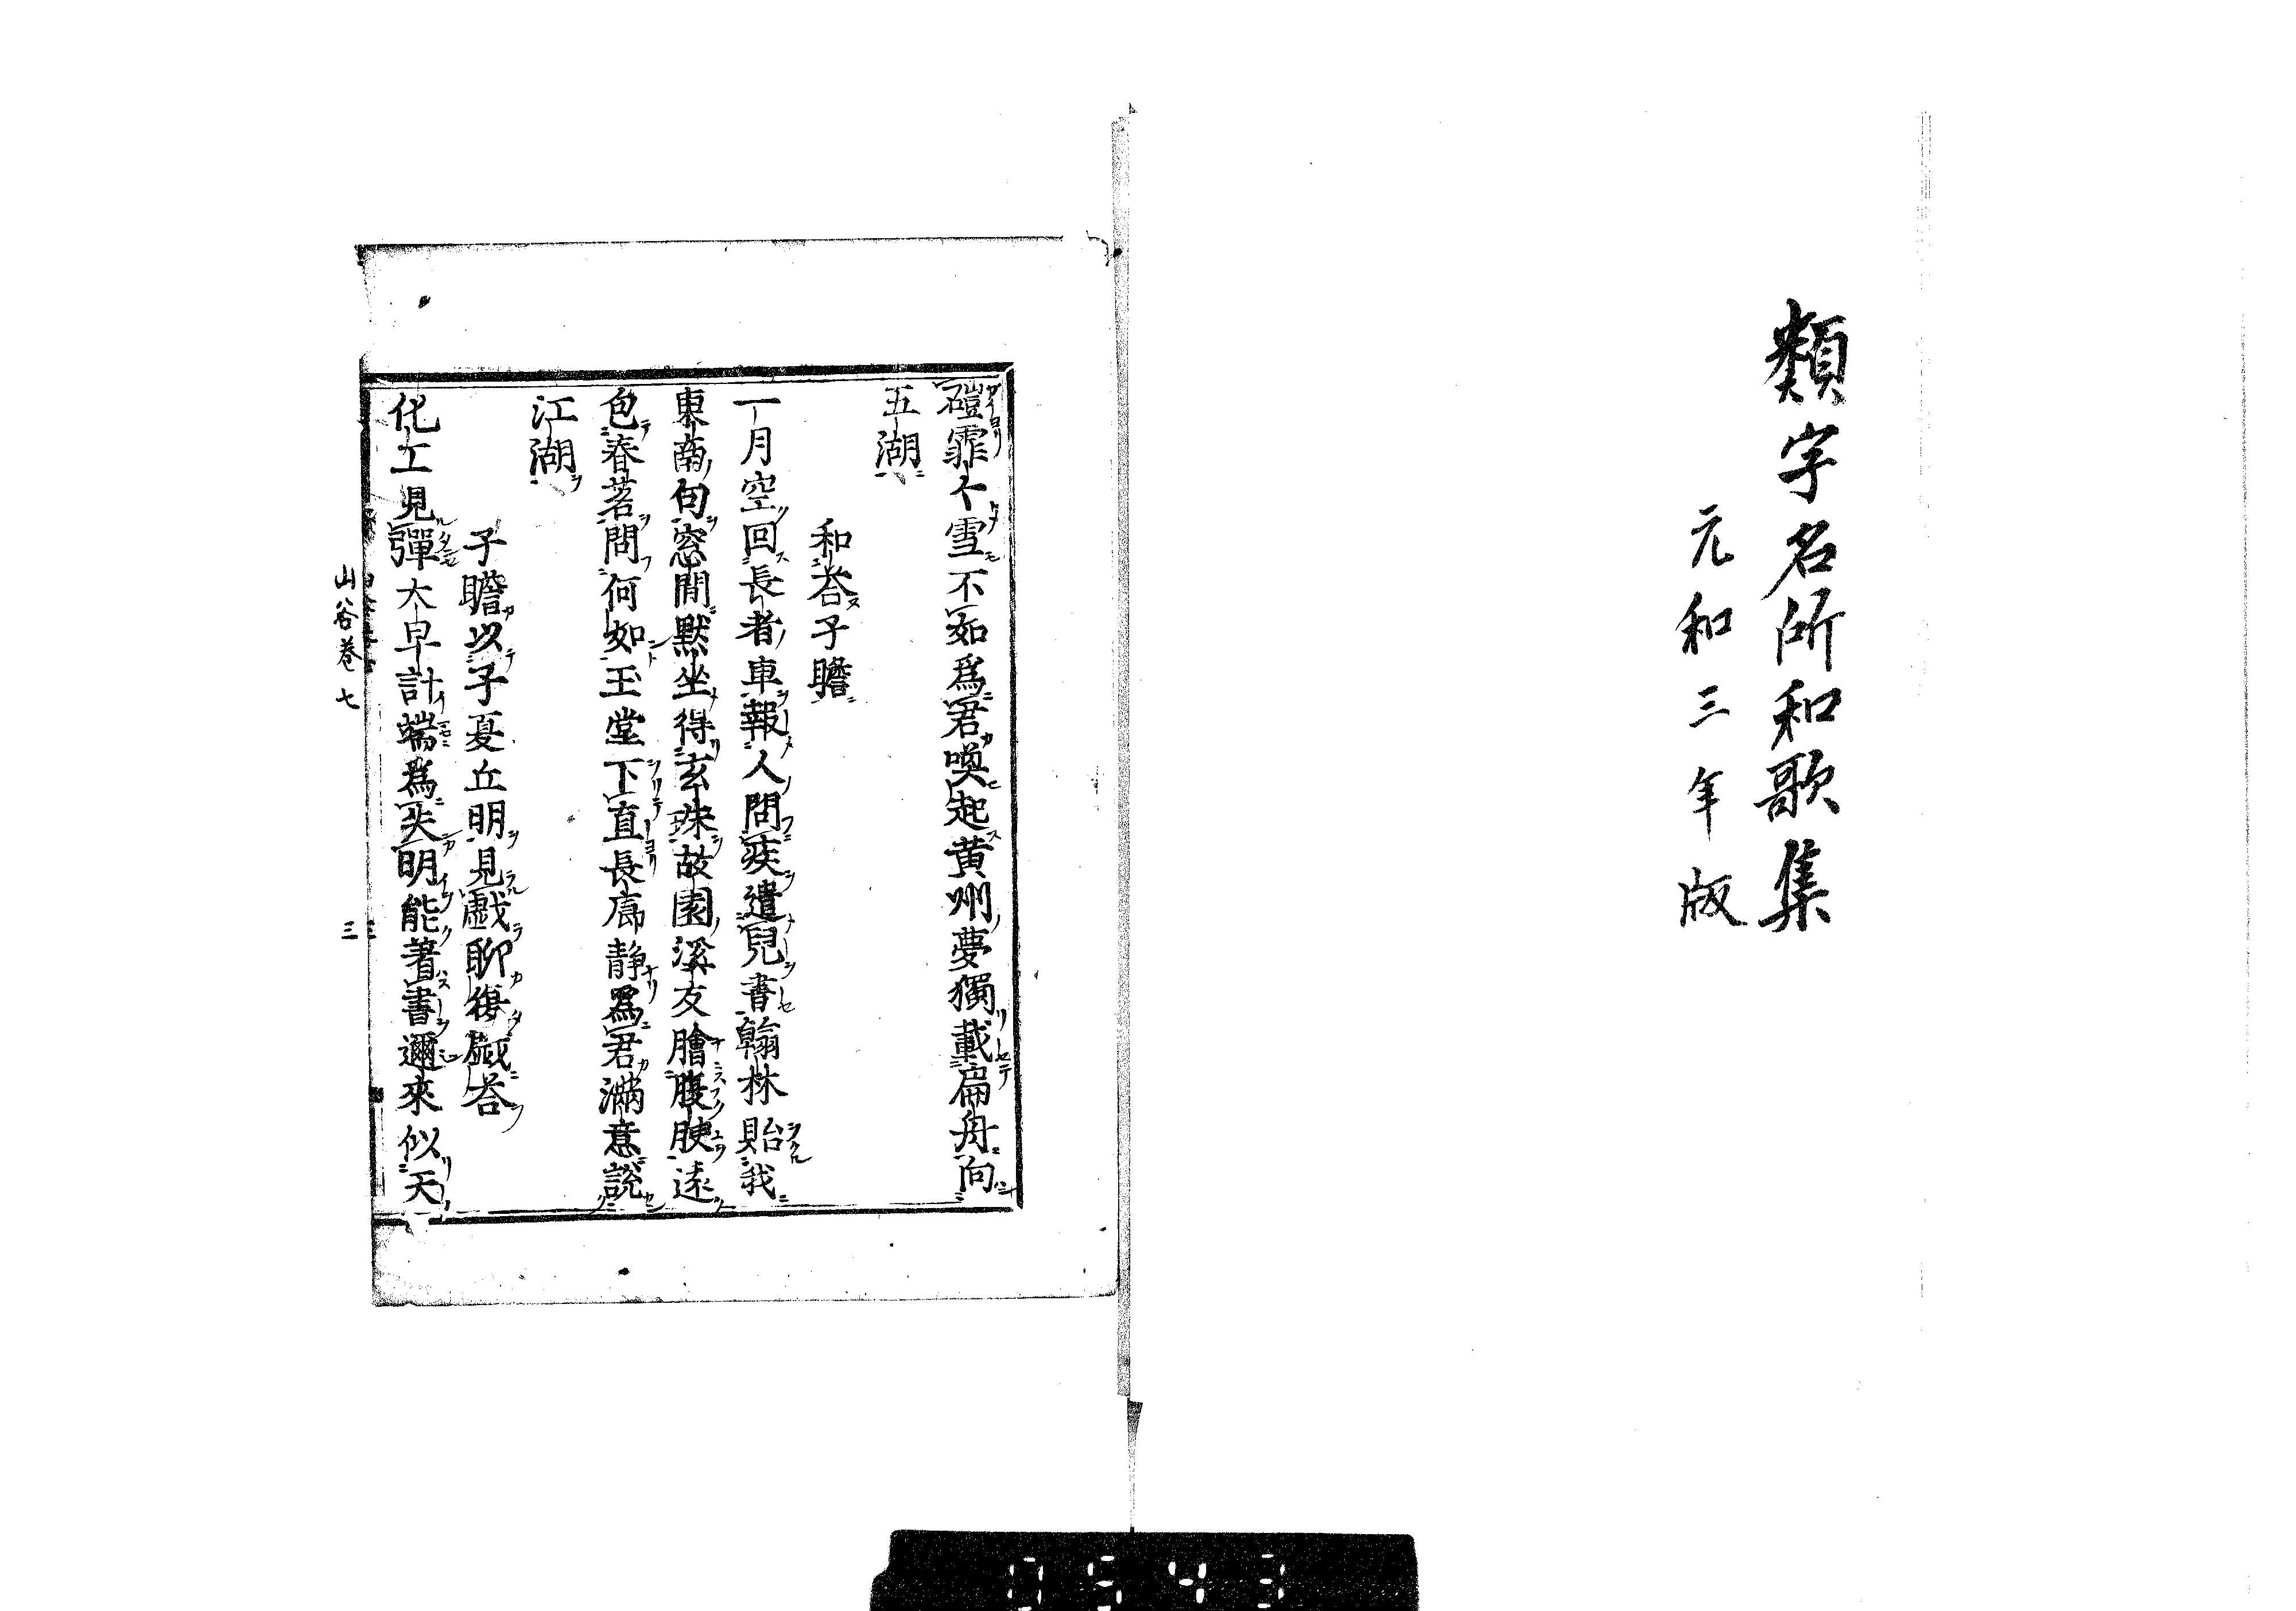 類字名所和歌集
元和三年版
磑霏不雪不如爲君喚起黄州夢獨載扁舟向
五湖
和荅子瞻
一月空回長者車報人問疾遣兒書翰林貽我
東南句窓間默坐得玄珠故園溪友膾腹腴遠
包春茗問何如玉堂下直長廊静爲君滿意説
江湖
子瞻以子夏丘明見戲聊復戲荅
化工見彈大早計端爲失明能著書邇來似天
山谷巻七
三
0543